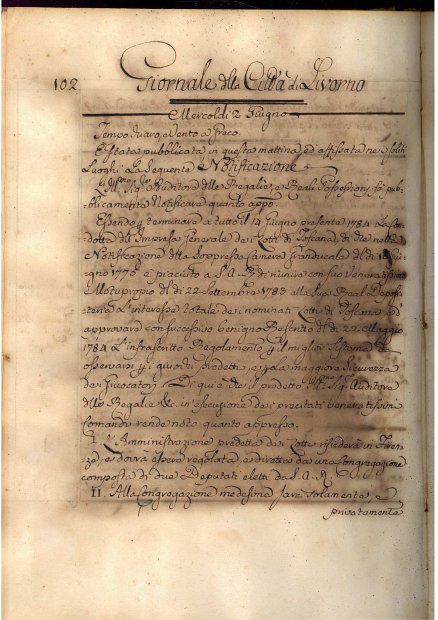 102 Giornale della Città di Livorno
Mercoldì 2 Giugno
Tempo buono, e Vento a Greco.
È stata pubblicata in questa mattina, ed affissata nei soliti
Luoghi La Seguente Notificazione
L'Ill.mo Sig.re Auditore delle Regalie, e Reali Possessioni fà pub-
blicamente Notificare quanto appo.
Essendo p terminare a tutto il 14 Giugno presente 1784 La Con-
dotta dell' Impresa Generale dei Lotti di Toscana di che nella
Notificazione della Soppressa Camera Granducale del dì Giu-
gno 1775 è piaciuto a S. A. R. di riunire con suo Veneratissimo
Motuproprio del dì 22 Settembre 1783 alla Sua Real Deposi-
teria L'interesse totale dei nominati Lotti di Toscana, ed
approvare con successivo benigno Rescritto del dì 22 Maggio
1784 L'infrascritto Regolamento p il miglior Sistema da
osservarsi p i giuochi predetti, e p la maggiore Sicurezza
dei Giuocatori. Di qui è che il predetto Ill.mo Sig.re Auditore
delle Regalie &c. in esecuzione dei precitati veneratissimi
Comandi rende noto quanto appresso.
I. L'Amministrazione predetta dei Lotti risiederà in Firen-
ze, e dovrà essere regolata, e diretta da una Congregazione
composta di due Deputati eletti da S. A. R.
II. Alla Congregazione medesima sarà solamente, e
privatamente